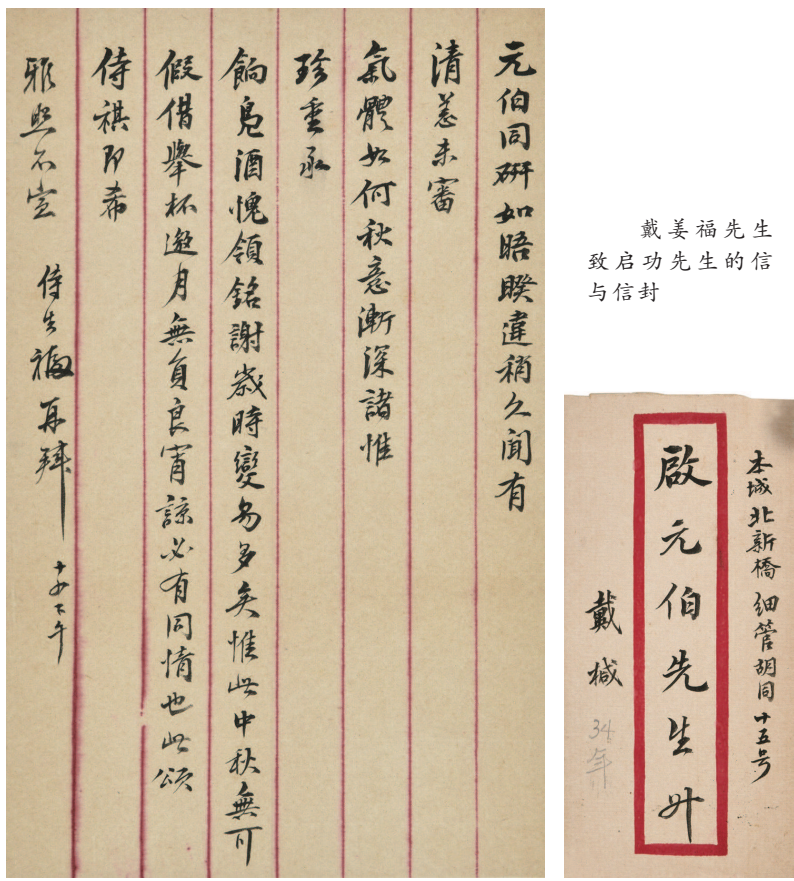 元伯同研如晤暌違稍久聞有
清恙未審
氣體如何秋意漸深諸惟
珍重承
餉鳧酒愧領銘謝歲時變易多矣惟此中秋無可
假借舉杯邀月無負良宵諒必有同情也此頌
侍祺即希
雅照不宣 侍生福再拜 十四下午
戴姜福先生
致启功先生的信
与信封
本城北新橋細管胡同十五号
啟元伯先生升
戴椷
34年